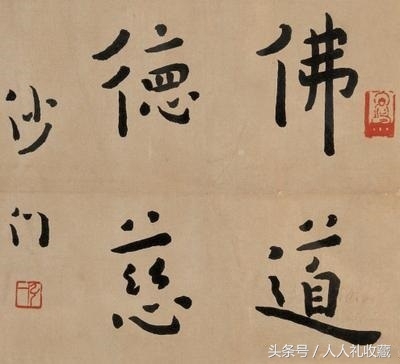 佛道
德慈
沙门
头条号 / 人人礼收藏